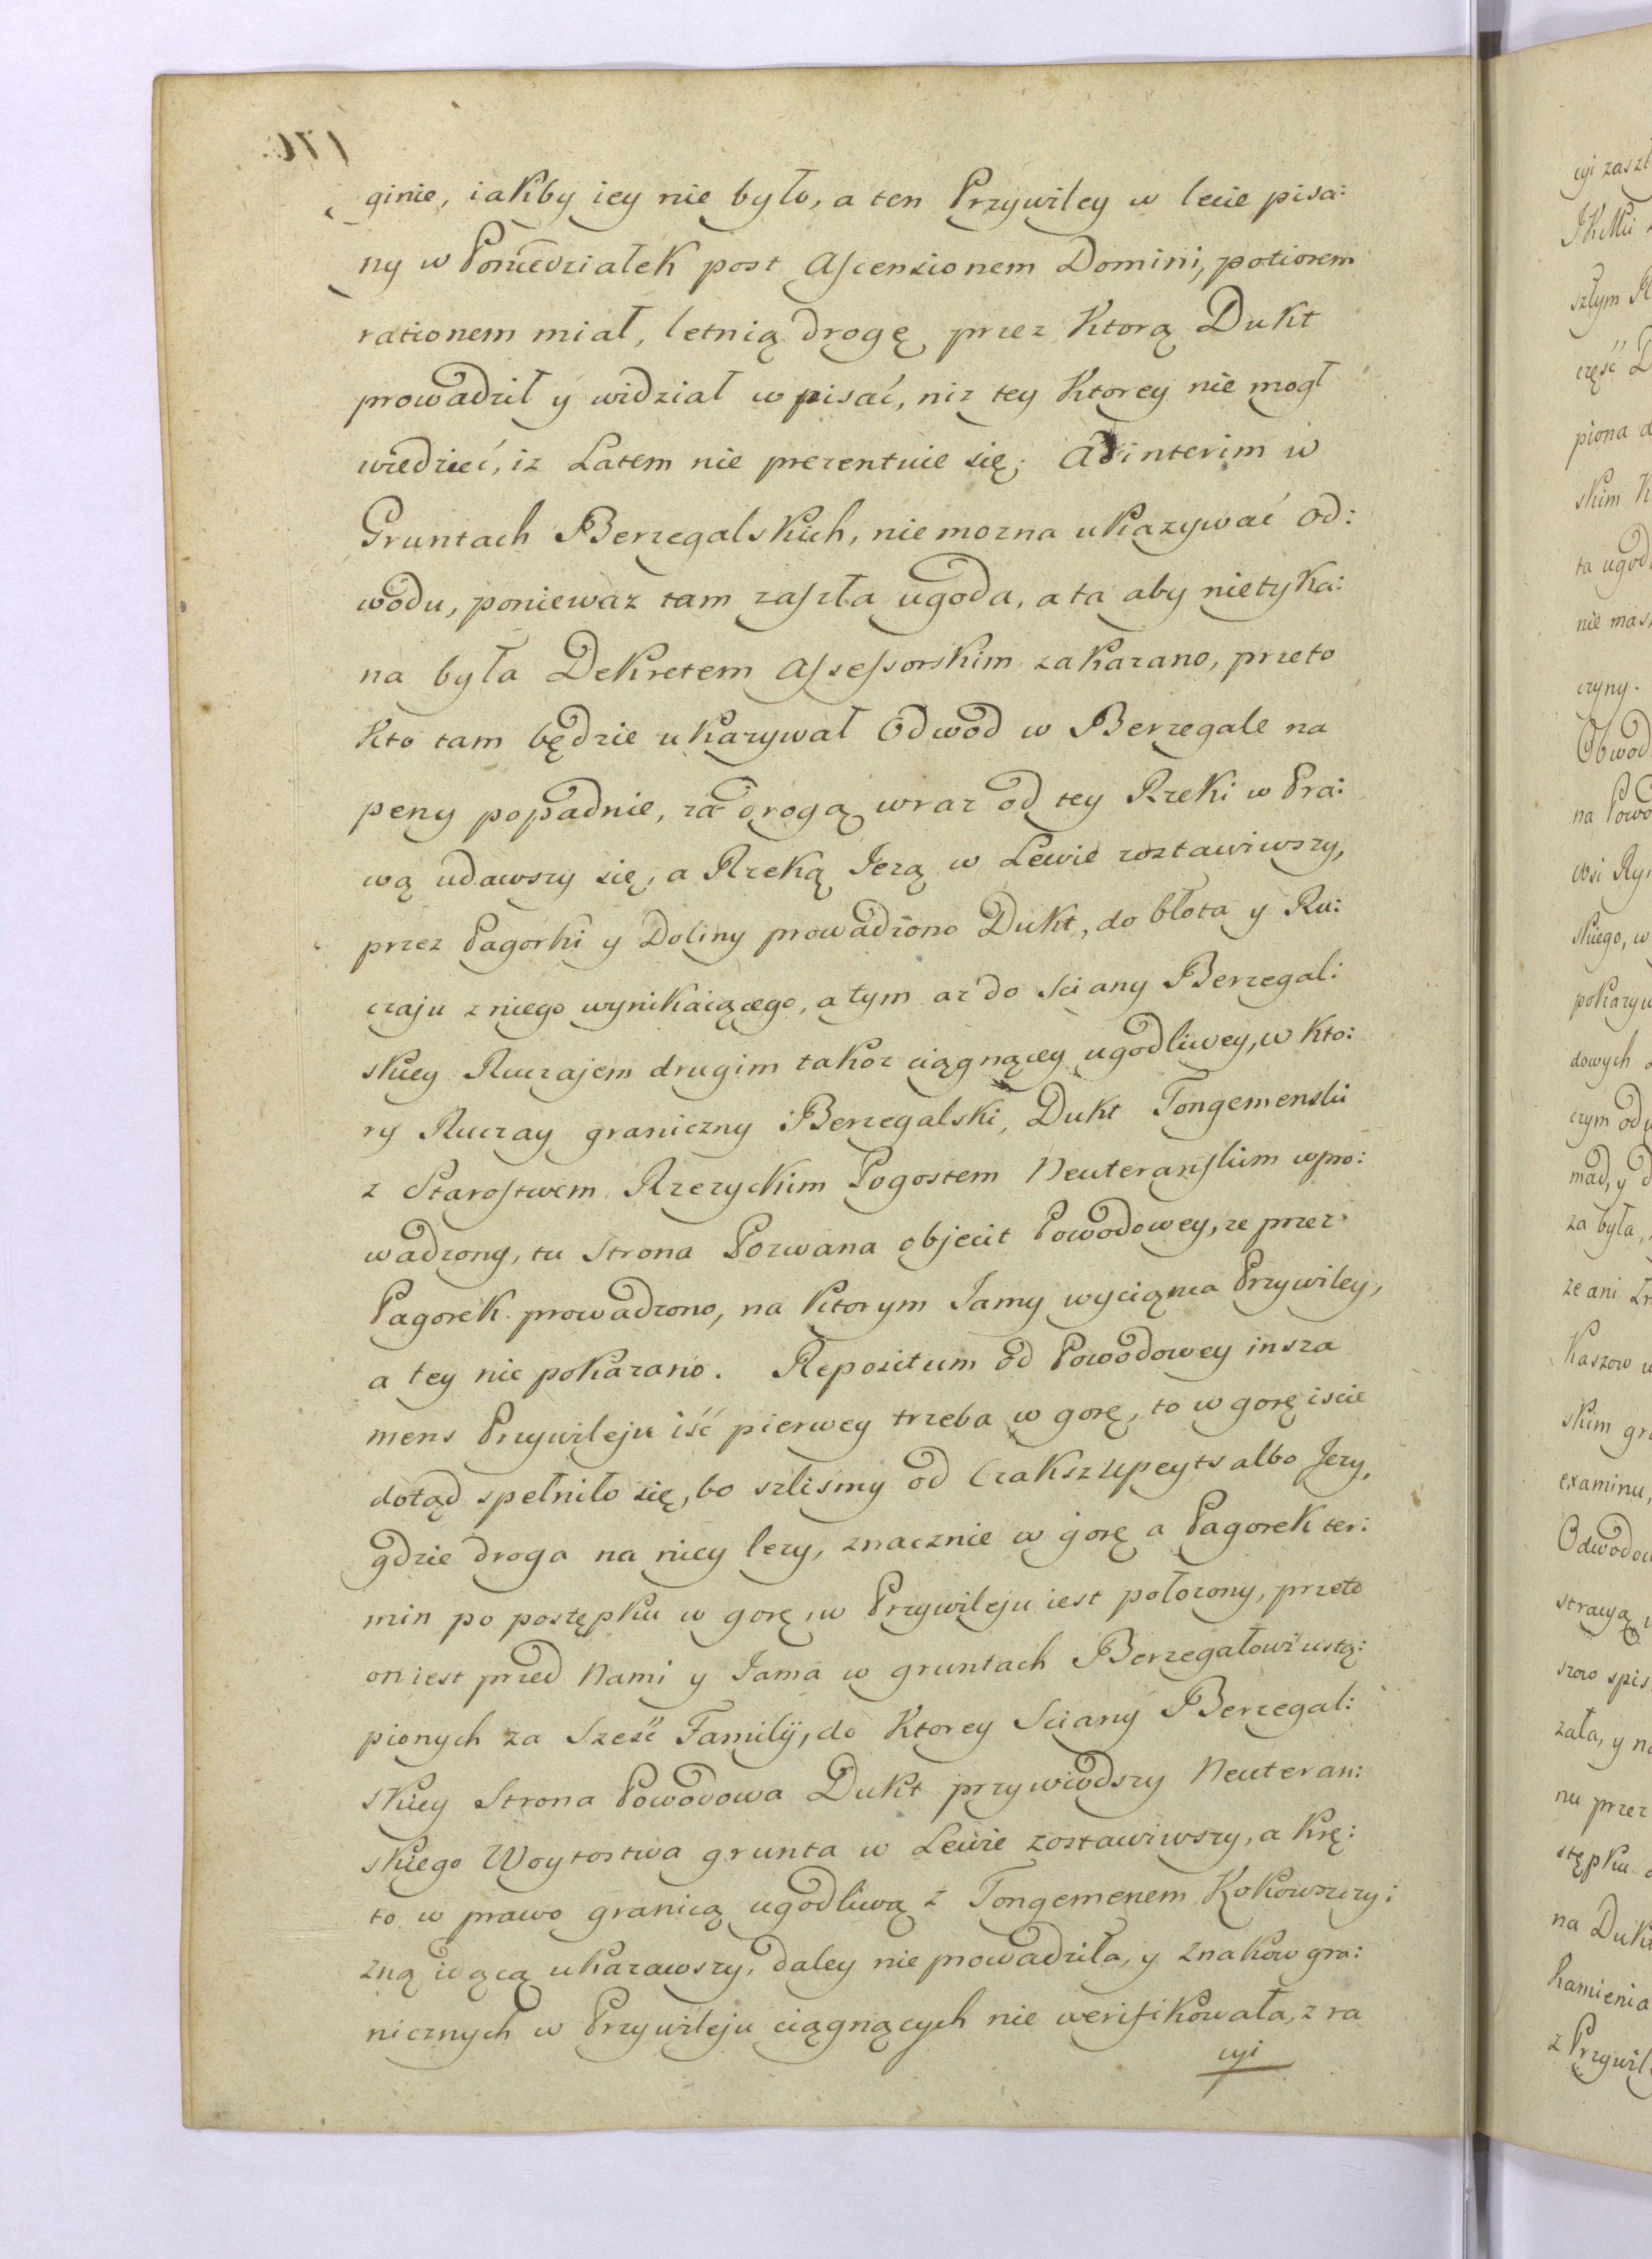 ginie, iakby iey nie było, a ten Przywiley w lecie pisa:
ny w Poniedziałek post Ascensionem Domini, potiorem
rationem miał, letnią drogę przez Ktorą Dukt
prowadził y widział wpisać, niz tey Ktorey nie mogł
wiedzieć, iz Latem nie prezentuie się; Adinterim w
Gruntach Berzegalskich, nie mozna ukazywać od:
wodu, poniewaz tam zaszła ugoda, a ta aby nietyka:
na była Dekretem Assessorskim zakazano, przeto
Kto tam będzie ukazywał Odwod w Berzegale na
peny popadnie, za drogą wraz od tey Rzeki w Pra:
wą udawszy się, a Rzeką Jezą w Lewie zostawiwszy,
przez Pagorki y Doliny prowadzono Dukt, do błota y Ru:
czaju z niego wynikaiącego, a tym az do Sciany Berzegal:
skiey Ruczajem drugim takoz ciągnącey ugodliwey, w kto:
ry Ruczay graniczny Berzegalski, Dukt Tongemenski
z Starostwem Rzezyckim Pogostem Neuteranskim wpro:
wadzony, tu Strona Pozwana objecit Powodowey, ze przez
Pagorek prowadzono, na Ktorym Jamy wyciąga Przywiley,
a tey nie pokazano. Repositum od Powodowey insza
mens Przywileju iść pierwey trzeba w gorę, to w gorę iscie
dotąd spełniło się, bo szlismy od Czakszupeyts albo Jezy,
gdzie droga na niey lezy, znacznie w gorę a Pagorek ter:
min po postępku w gorę, w Przywileju iest połozony, przeto
on iest przed Nami y Jama w gruntach Berzegałowi ustą:
pionych za Sześć Familij, do Ktorey Sciany Berzegal:
skiey Strona Powodowa Dukt przywiodszy Neuteran:
skiego Woytostwa grunta w Lewie zostawiwszy, a krę:
to w prawo granicą ugodliwą z Tongemenem Kokowszczy:
zną idącą ukazawszy, daley nie prowadziła, y Znakow gra:
nicznych w Przywileju ciągnących nie werifikowała, z ra
cyi